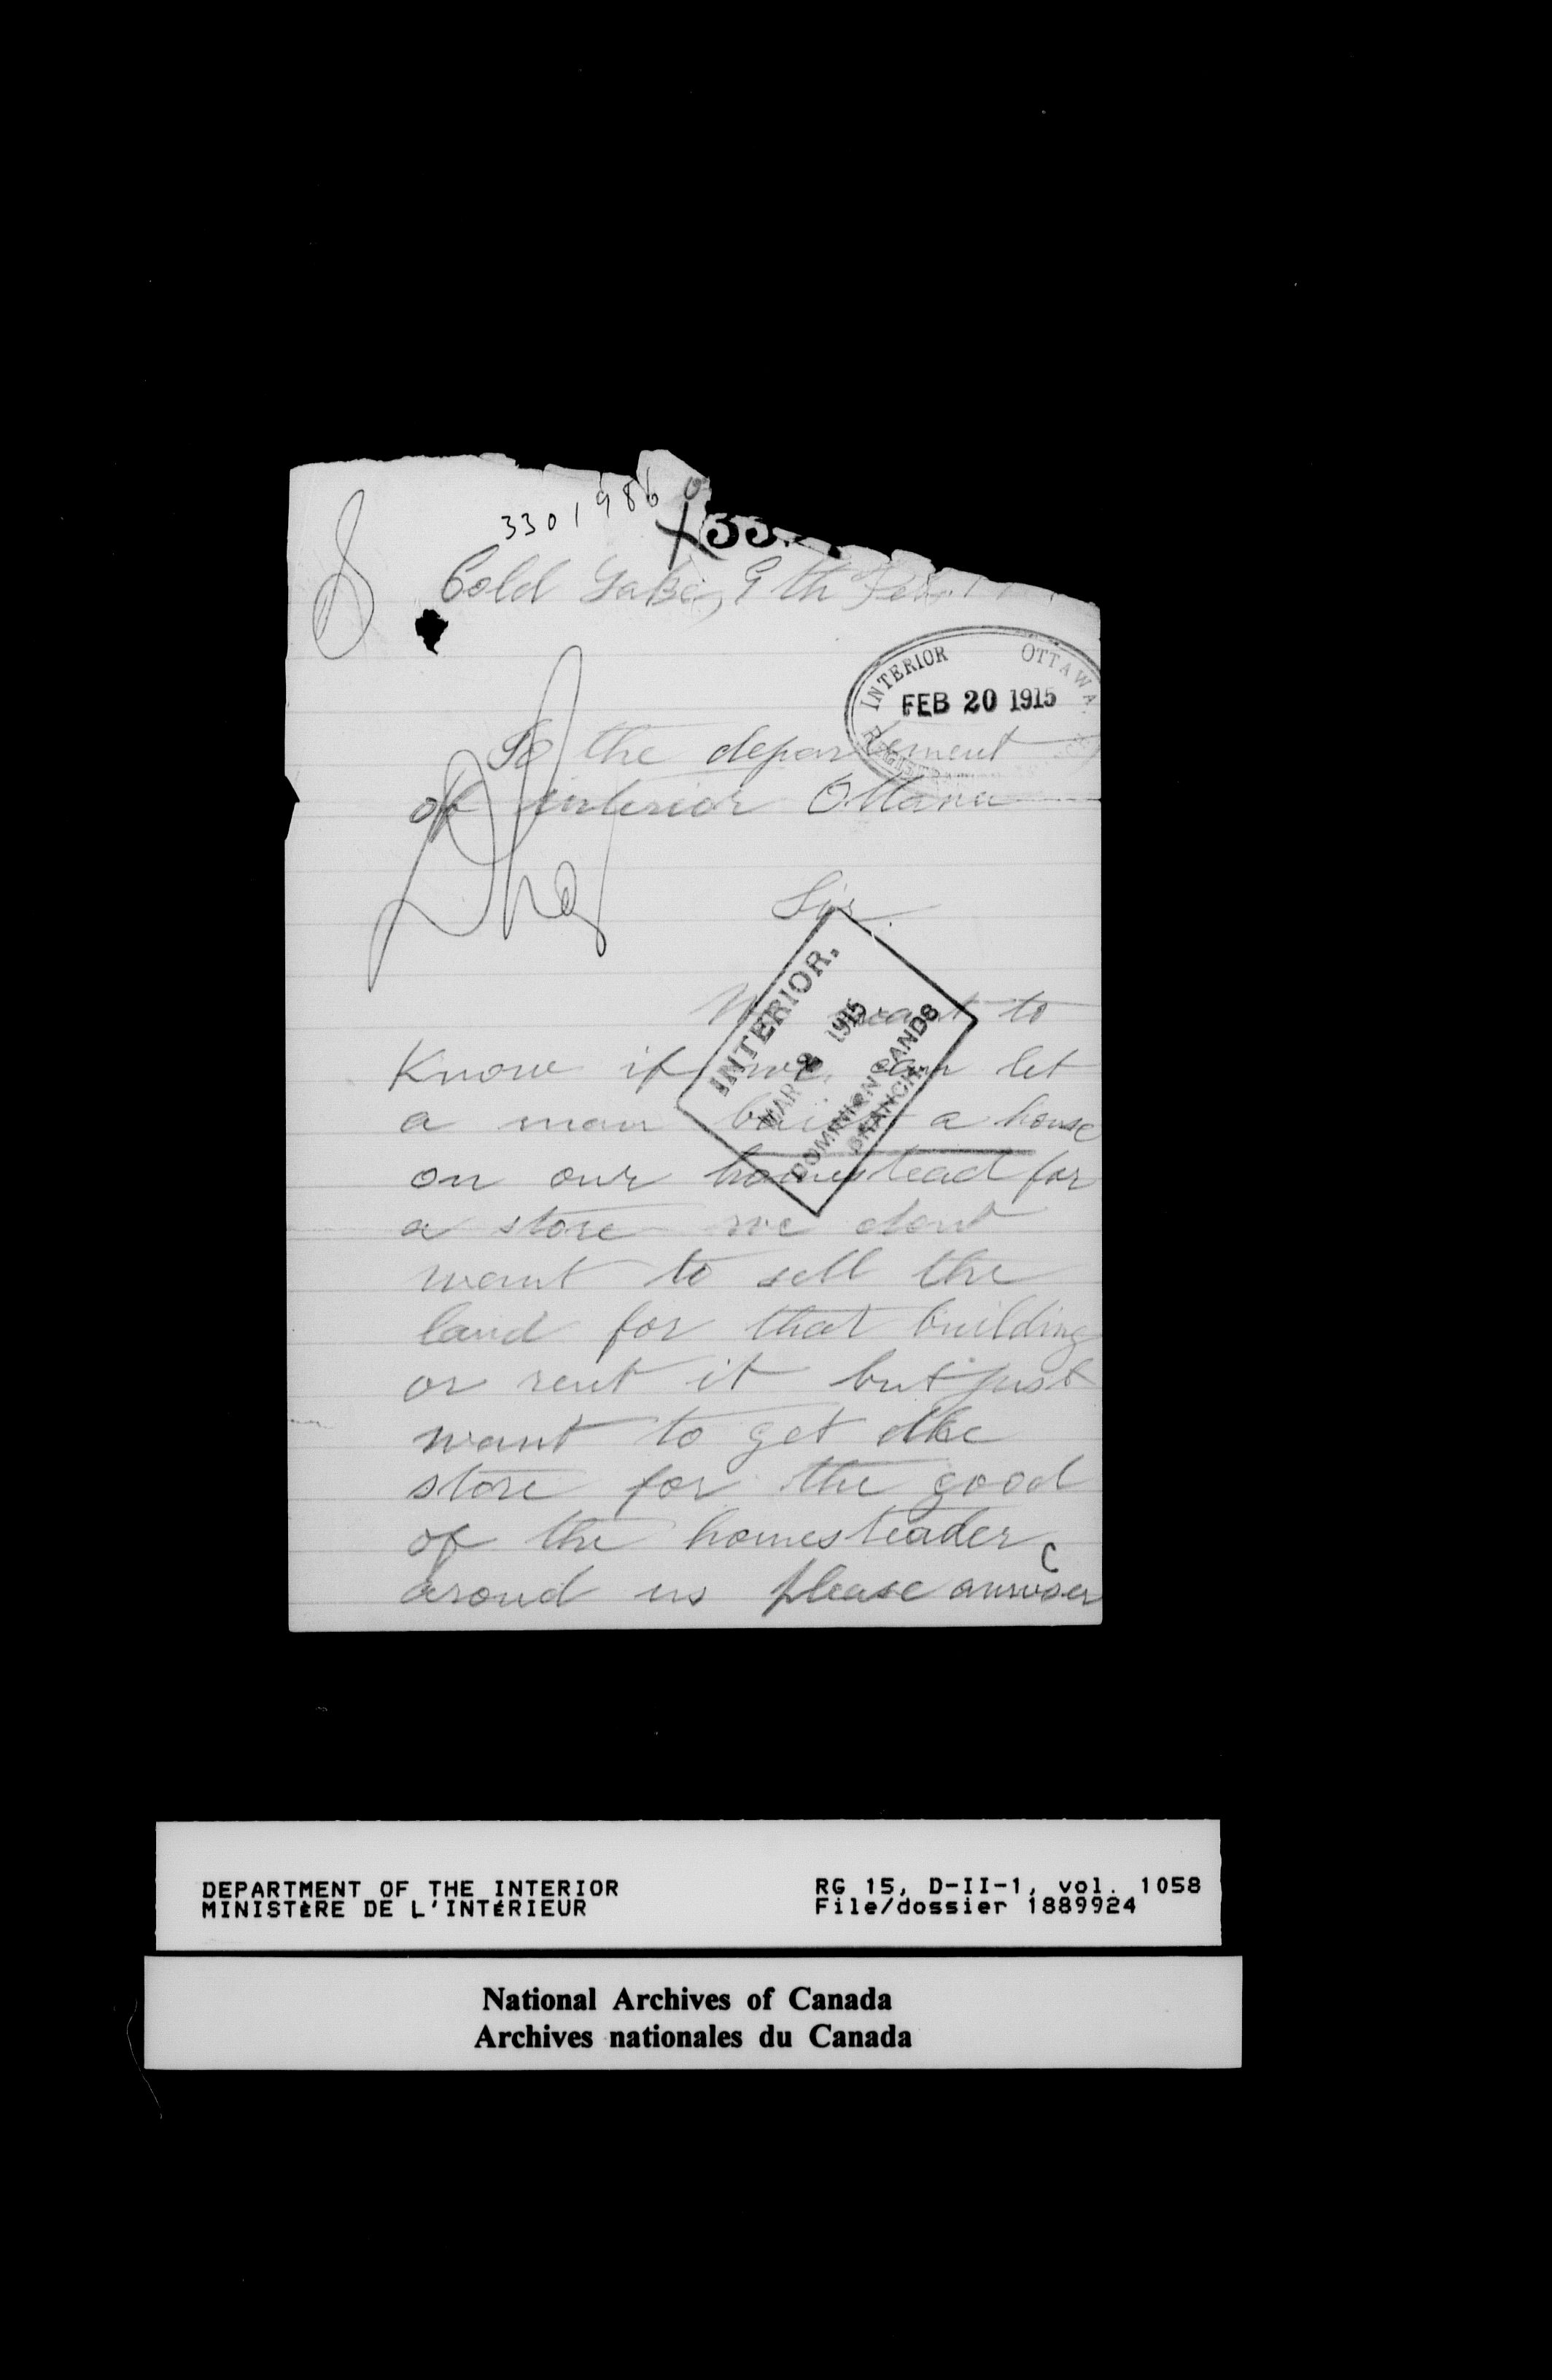 3301986
Cold Lake, 9th Feb.
INTERIOR OTTAWA
FEB 20 1915
To the departement
of interior Ottawa
Sir.
We want to
Know if we can let
a man built a house
on our homestead for
a store we dont
want to sell the
land for that building
or rent it but just
want to get the
store for the good
of the homesteader
aroud us please answer
INTERIOR.
MAR 2 1915
DOMINION LANDS
BRANCH.
DEPARTMENT OF THE INTERIOR
MINISTÈRE DE L'INTÉRIEUR
RG 15, D-II-1, vol. 1058
File/dossier 1889924
National Archives of Canada
Archives nationales du Canada